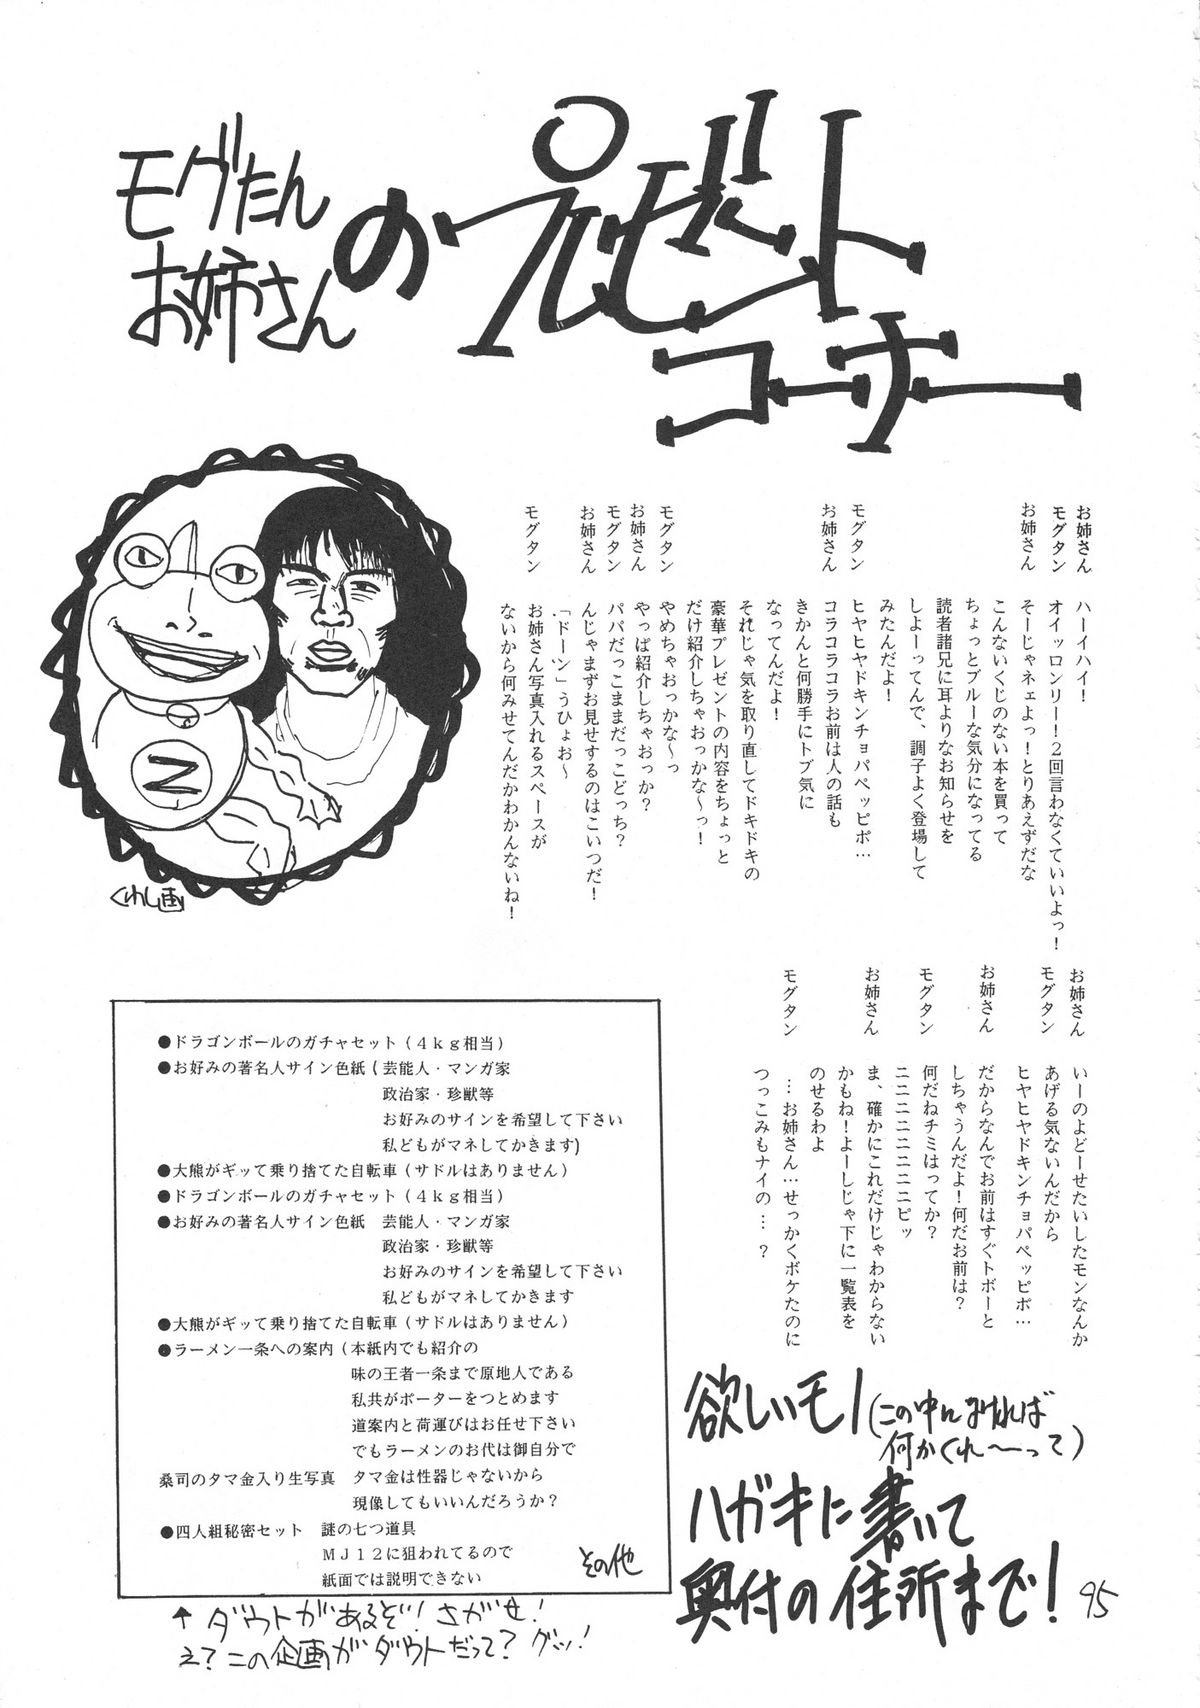 モグたん
お姉さん
の
プレゼント
コーナー
お姉さん　ハーイハイ！
モグタン　オイッロンリー！２回言わなくていいよっ！
お姉さん　そーじゃネェよっ！とりあえずだな
こんないくじのない本を買って
ちょっとブルーな気分になってる
読者諸兄に耳よりなお知らせを
しよーってんで、調子よく登場して
みたんだよ！
モグタン　ヒヤヒヤドキンチョパペッピポ…
お姉さん　コラコラコラお前は人の話も
きかんと何勝手にトブ気に
なってんだよ！
それじゃ気を取り直してドキドキの
豪華プレゼントの内容をちょっと
だけ紹介しちゃおっかな～っ！
モグタン　やめちゃおっかな～っ
お姉さん　やっぱ紹介しちゃおっか？
モグタン　パパだっこままだっこどっち？
お姉さん　んじゃまずお見せするのはこいつだ！
「ドーン」うひょお～
モグタン　お姉さん写真入れるスペースが
ないから何みせてんだかわかんないね！
お姉さん　いーのよどーせたいしたモンなんか
あげる気ないんだから
モグタン　ヒヤヒヤドキンチョパペッピポ…
お姉さん　だからなんでお前はすぐトボーと
しちゃうんだよ！何だお前は？
モグタン　何だねチミはってか？
ニニニニニニニピッ
お姉さん　ま、確かにこれだけじゃわからない
かもね！よーしじゃ下に一覧表を
のせるわよ
モグタン　…お姉さん…せっかくボケたのに
つっこみもナイの…？
N
くわし画
●ドラゴンボールのガチャセット（４ｋｇ相当）
●お好みの著名人サイン色紙（芸能人・マンガ家
政治家・珍獣等
お好みのサインを希望して下さい
私どもがマネしてかきます）
●大熊がギッて乗り捨てた自転車（サドルはありません）
●ドラゴンボールのガチャセット（４ｋｇ相当）
●お好みの著名人サイン色紙　芸能人・マンガ家
政治家・珍獣等
お好みのサインを希望して下さい
私どもがマネしてかきます
●大熊がギッて乗り捨てた自転車（サドルはありません）
●ラーメン一条への案内（本紙内でも紹介の
味の王者一条まで原地人である
私共がポーターをつとめます
道案内と荷運びはお任せ下さい
でもラーメンのお代は御自分で
桑司のタマ金入り生写真　タマ金は性器じゃないから
現像してもいいんだろうか？
●四人組秘密セット　謎の七つ道具
ＭＪ１２に狙われてるので
紙面では説明できない
その他
↑ダウトがあるぞ！さがせ！
え？この企画がダウトだって？グッ！
欲しいモノ（この中になければ
何かくれ～って）
ハガキに書いて
奥付の住所まで！
95